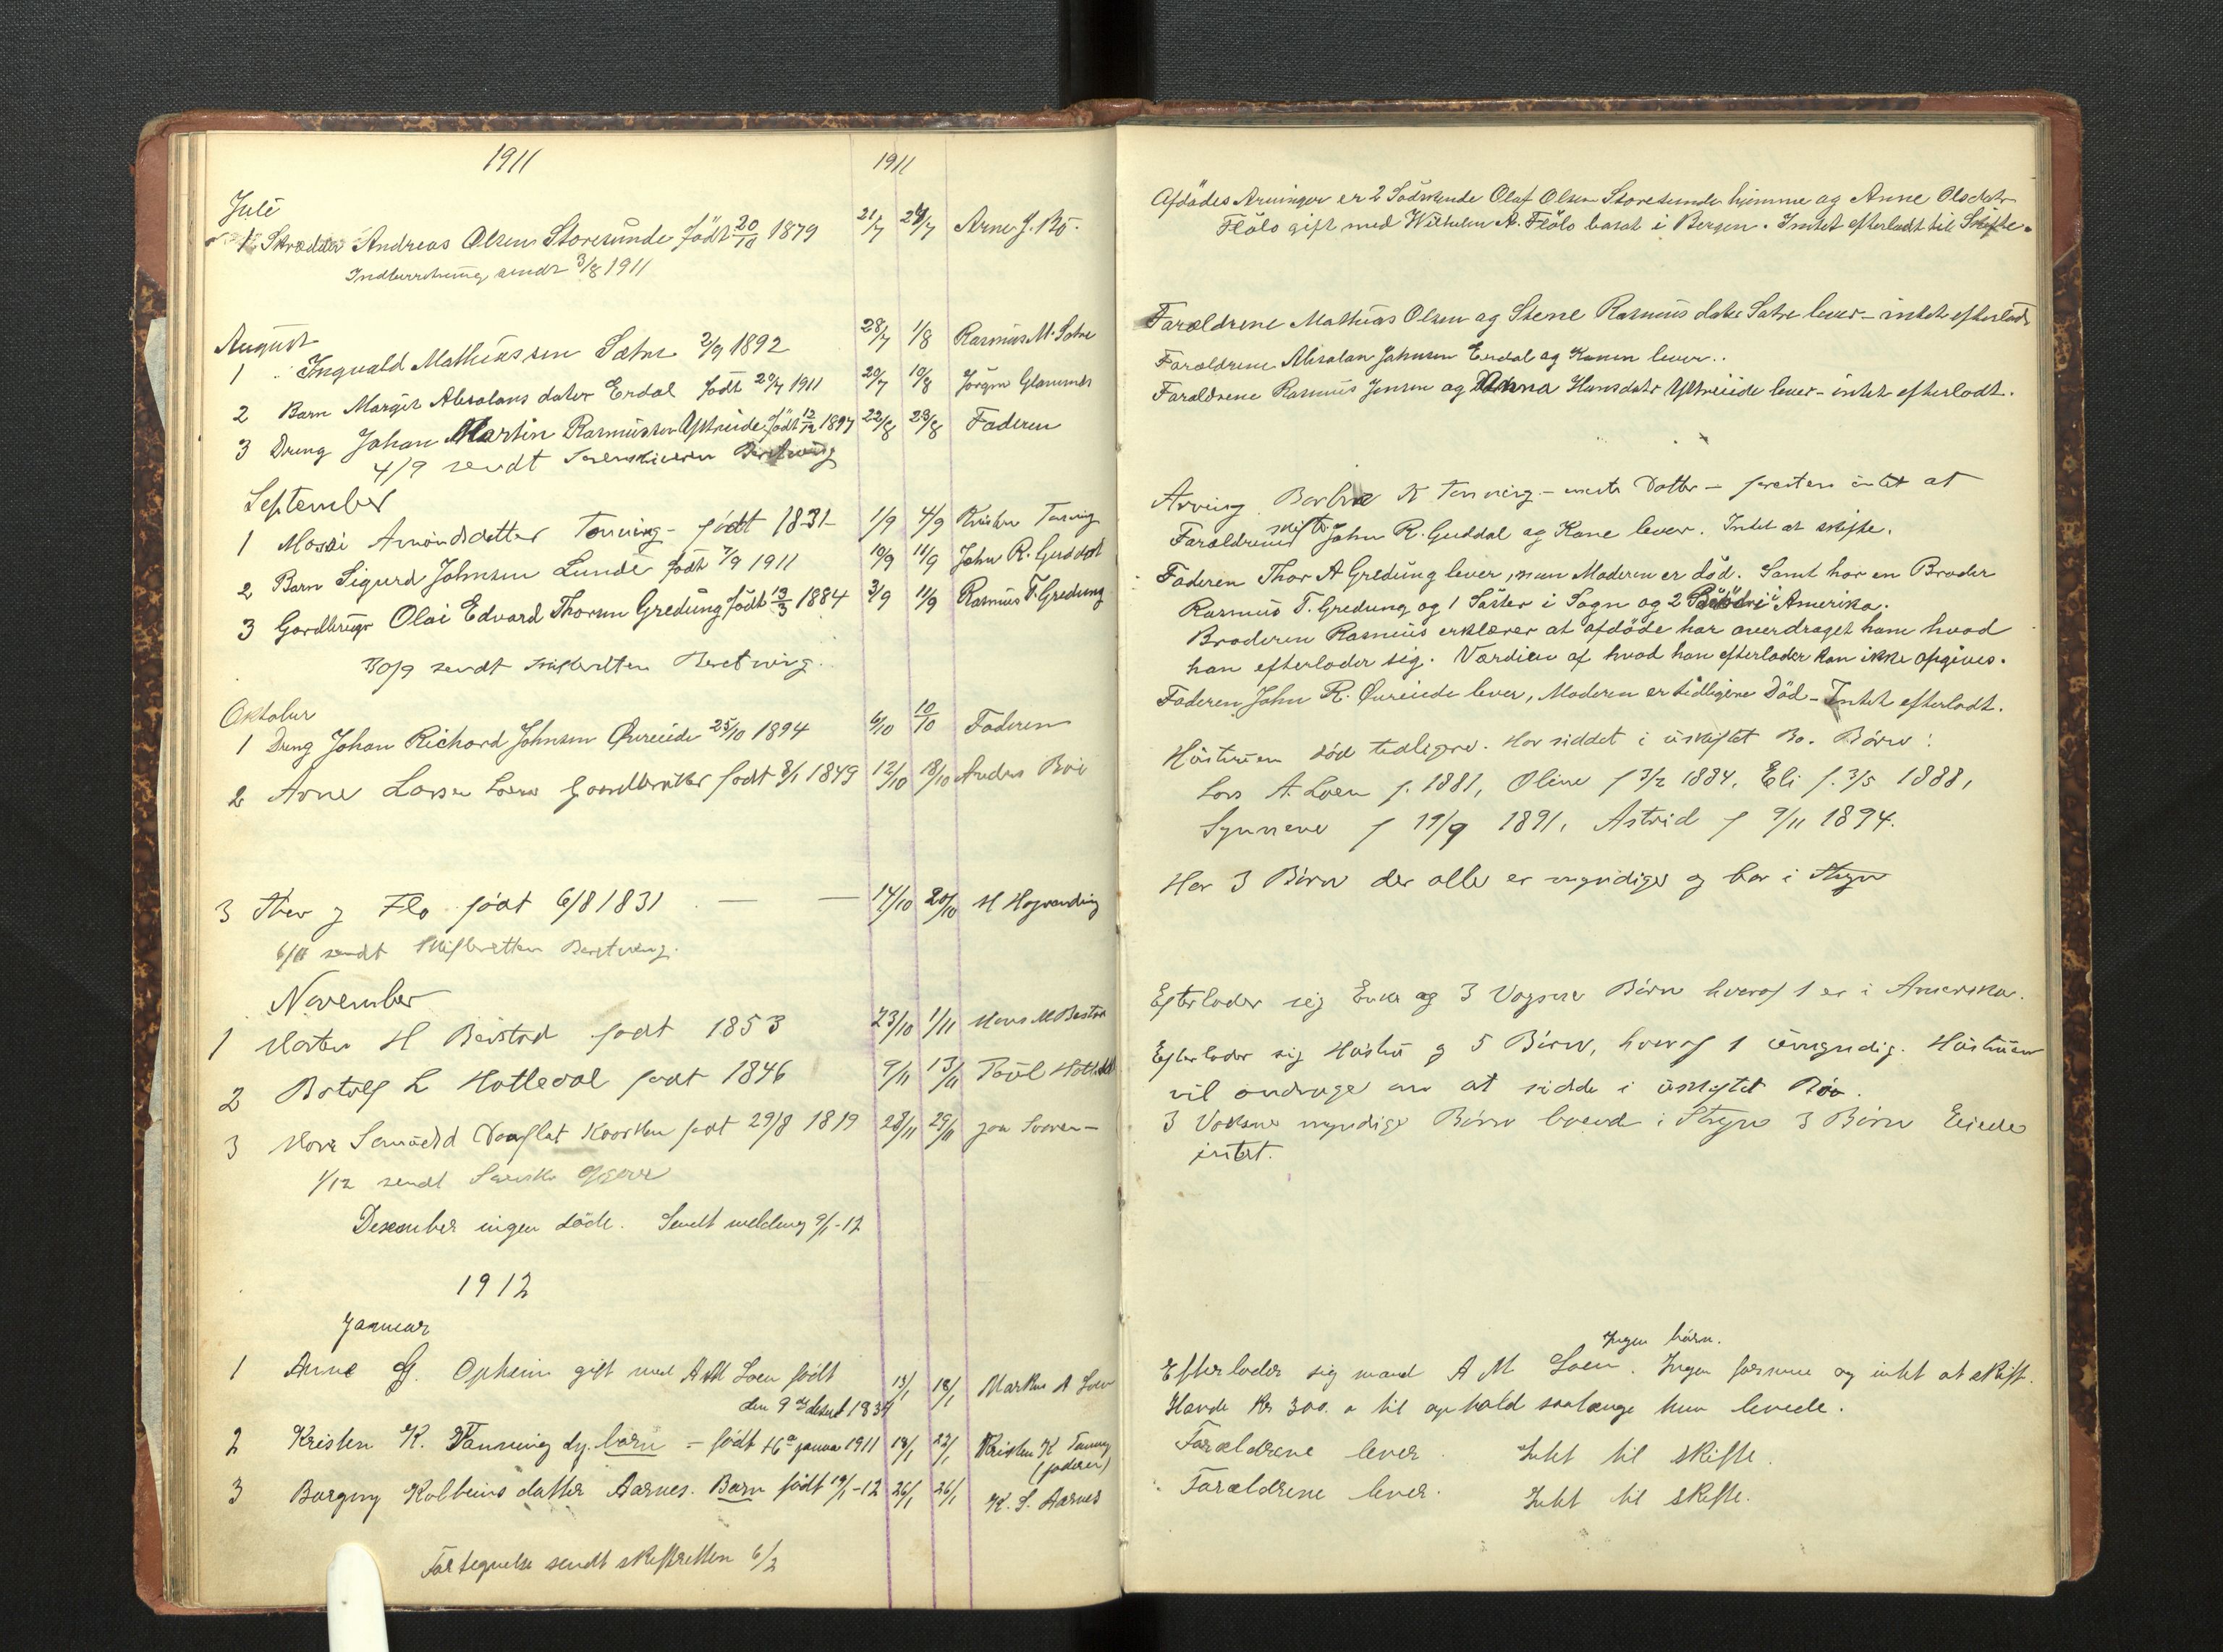 1911
1911
Juli
1 Skrædder Andreas Olsen Storesunde födt 20/10 1879 21/7 24/7 Arne J. Bö.
Indberetning sendt 3/8 1911
August
1 Ingvald Mathiassen Sætre 2/9 1892 28/7 1/8 Rasmus M. Sætre
2 Barn Margit Absalons dater Erdal födt 20/7 1911 29/7 10/8 Jörgen Glommes
3 Dreng Johan Martin Rasmussen Ystreeide födt 12/12 1897 22/8 23/8 Faderen
4/9 sendt Sorenskriveren Beretning
September
1 Massi Amundsdatter Tonning - födt 1831 - 1/9 4/9 Kristen Tonning
2 Barn Sigurd Johnsen Lunde födt 7/9 1911 10/9 11/9 John R. Guddal
3 Gardbruger Olai Edvard Thorsen Gredung födt 13/3 1884 3/9 11/9 Rasmus T. Gredung
30/9 sendt skifteretten Beretning.
Oktober
1 Dreng Johan Richard Johnsen Övreeide 25/10 1894 6/10 10/10 Faderen
2 Arne Larsen Loen Gaardbruker födt 8/1 1849 12/10 18/10 Anders Bö
3 Flo födt 6/8 1831 — — 14/10 20/10 H Hogrending
6/11 sendt Skifteretten Beretning.
November
1 Morten H Beistad födt 1853 23/10 1/11 Hans M Bestad
2 Botolf L Hatledal födt 1846 9/11 13/11 Paul Hatledal
3 Dauflat födt 29/8 1819 28/11 29/11
1/12 sendt
Desember ingen döde. Sendt melding 9/1-12
1912
Januar
1 Anne G. Opheim gift med A M Loen födt 13/1 18/1 Markus A Loen
den 9de desbr 1834
2 Kristen K. Tonning dy. barn - födt 16de januar 1911 18/1 22/1 Kristen K Tonning
(faderen)
3 Borgny Kolbeins datter Aarnes. Barn födt 19/1-12 26/1 26/1 K. S. Aarnes
Fortegnelse sendt skifteretten 6/2
Afdödes Arvinger er 2 Södskende Olaf Olsen Storesunde hjemme og Anne Olsdatr
Flölo gift med Wilhelm A. Flölo bosat i Bergen. Intet efterladt til Skifte.
Forældrene Mathias Olsen og Stene Rasmus dater Sætre lever - intet efterladt
Forældrene Absalon Johnsen Erdal og Konen lever..
Forældrene Rasmus Jensen og Anna Hansdatr Ystreeide lever - intet efterladt.
Arving Barbra K Tonning - eneste Datter - forresten intet at
skifte
Forældrene John R. Guddal og Kone lever. Intet at skifte.
Faderen Thor A Gredung lever, men Moderen er död. Samt har en Broder
Rasmus T. Gredung og 1 Söster i Sogn og 2 Brödre i Amerika.
Broderen Rasmus erklærer at afdöde har overdraget ham hvad
han efterlader sig. Værdien af hvad han efterlader kan ikke opgives.
Faderen John R. Övreeide lever, Moderen er tidligere Död - Intet efterladt.
Hustruen död tidligere. Har siddet i uskiftet Bo. Börn:
Lars A. Loen f. 1881, Oline f 3/2 1884, Eli f. 3/5 1888,
Synneve f 19/9 1891, Astrid f 9/11 1894.
Har 3 Börn der alle er myndige og bor i Stryn
Efterlader sig Enke og 3 Voksne Börn hvoraf 1 er i Amerika.
Efterlader sig Hustru og 5 Börn, hvoraf 1 umyndig. Hustruen
vil andrage om at sidde i uskiftet Bo.
3 Voksne myndige Börn boende i Stryn 3 Börn Eiede
intet.
Ingen börn.
Efterlader sig mand A M Loen. Ingen formue og intet at skift.
Havde Kr 300.- til ophold saalænge hun levede.
Forældrene lever. Intet til skifte.
Forældrene lever. Intet til skifte.